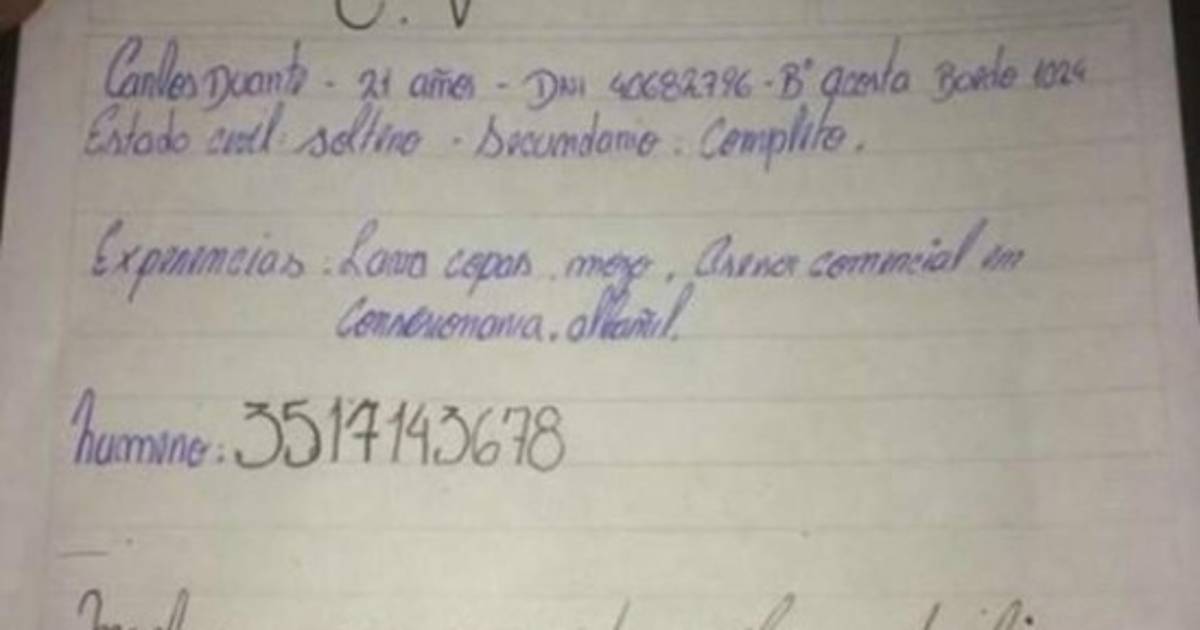 C. V
Carlos Duarte - 21 años - DNI 40682796 - B° acosta Bordo 1024
Estado civil: soltero - Secundario: Completo.
Experiencias: Lava copas. mozo. Asesor comercial en
Concesionaria. albañil.
numero: 3517143678